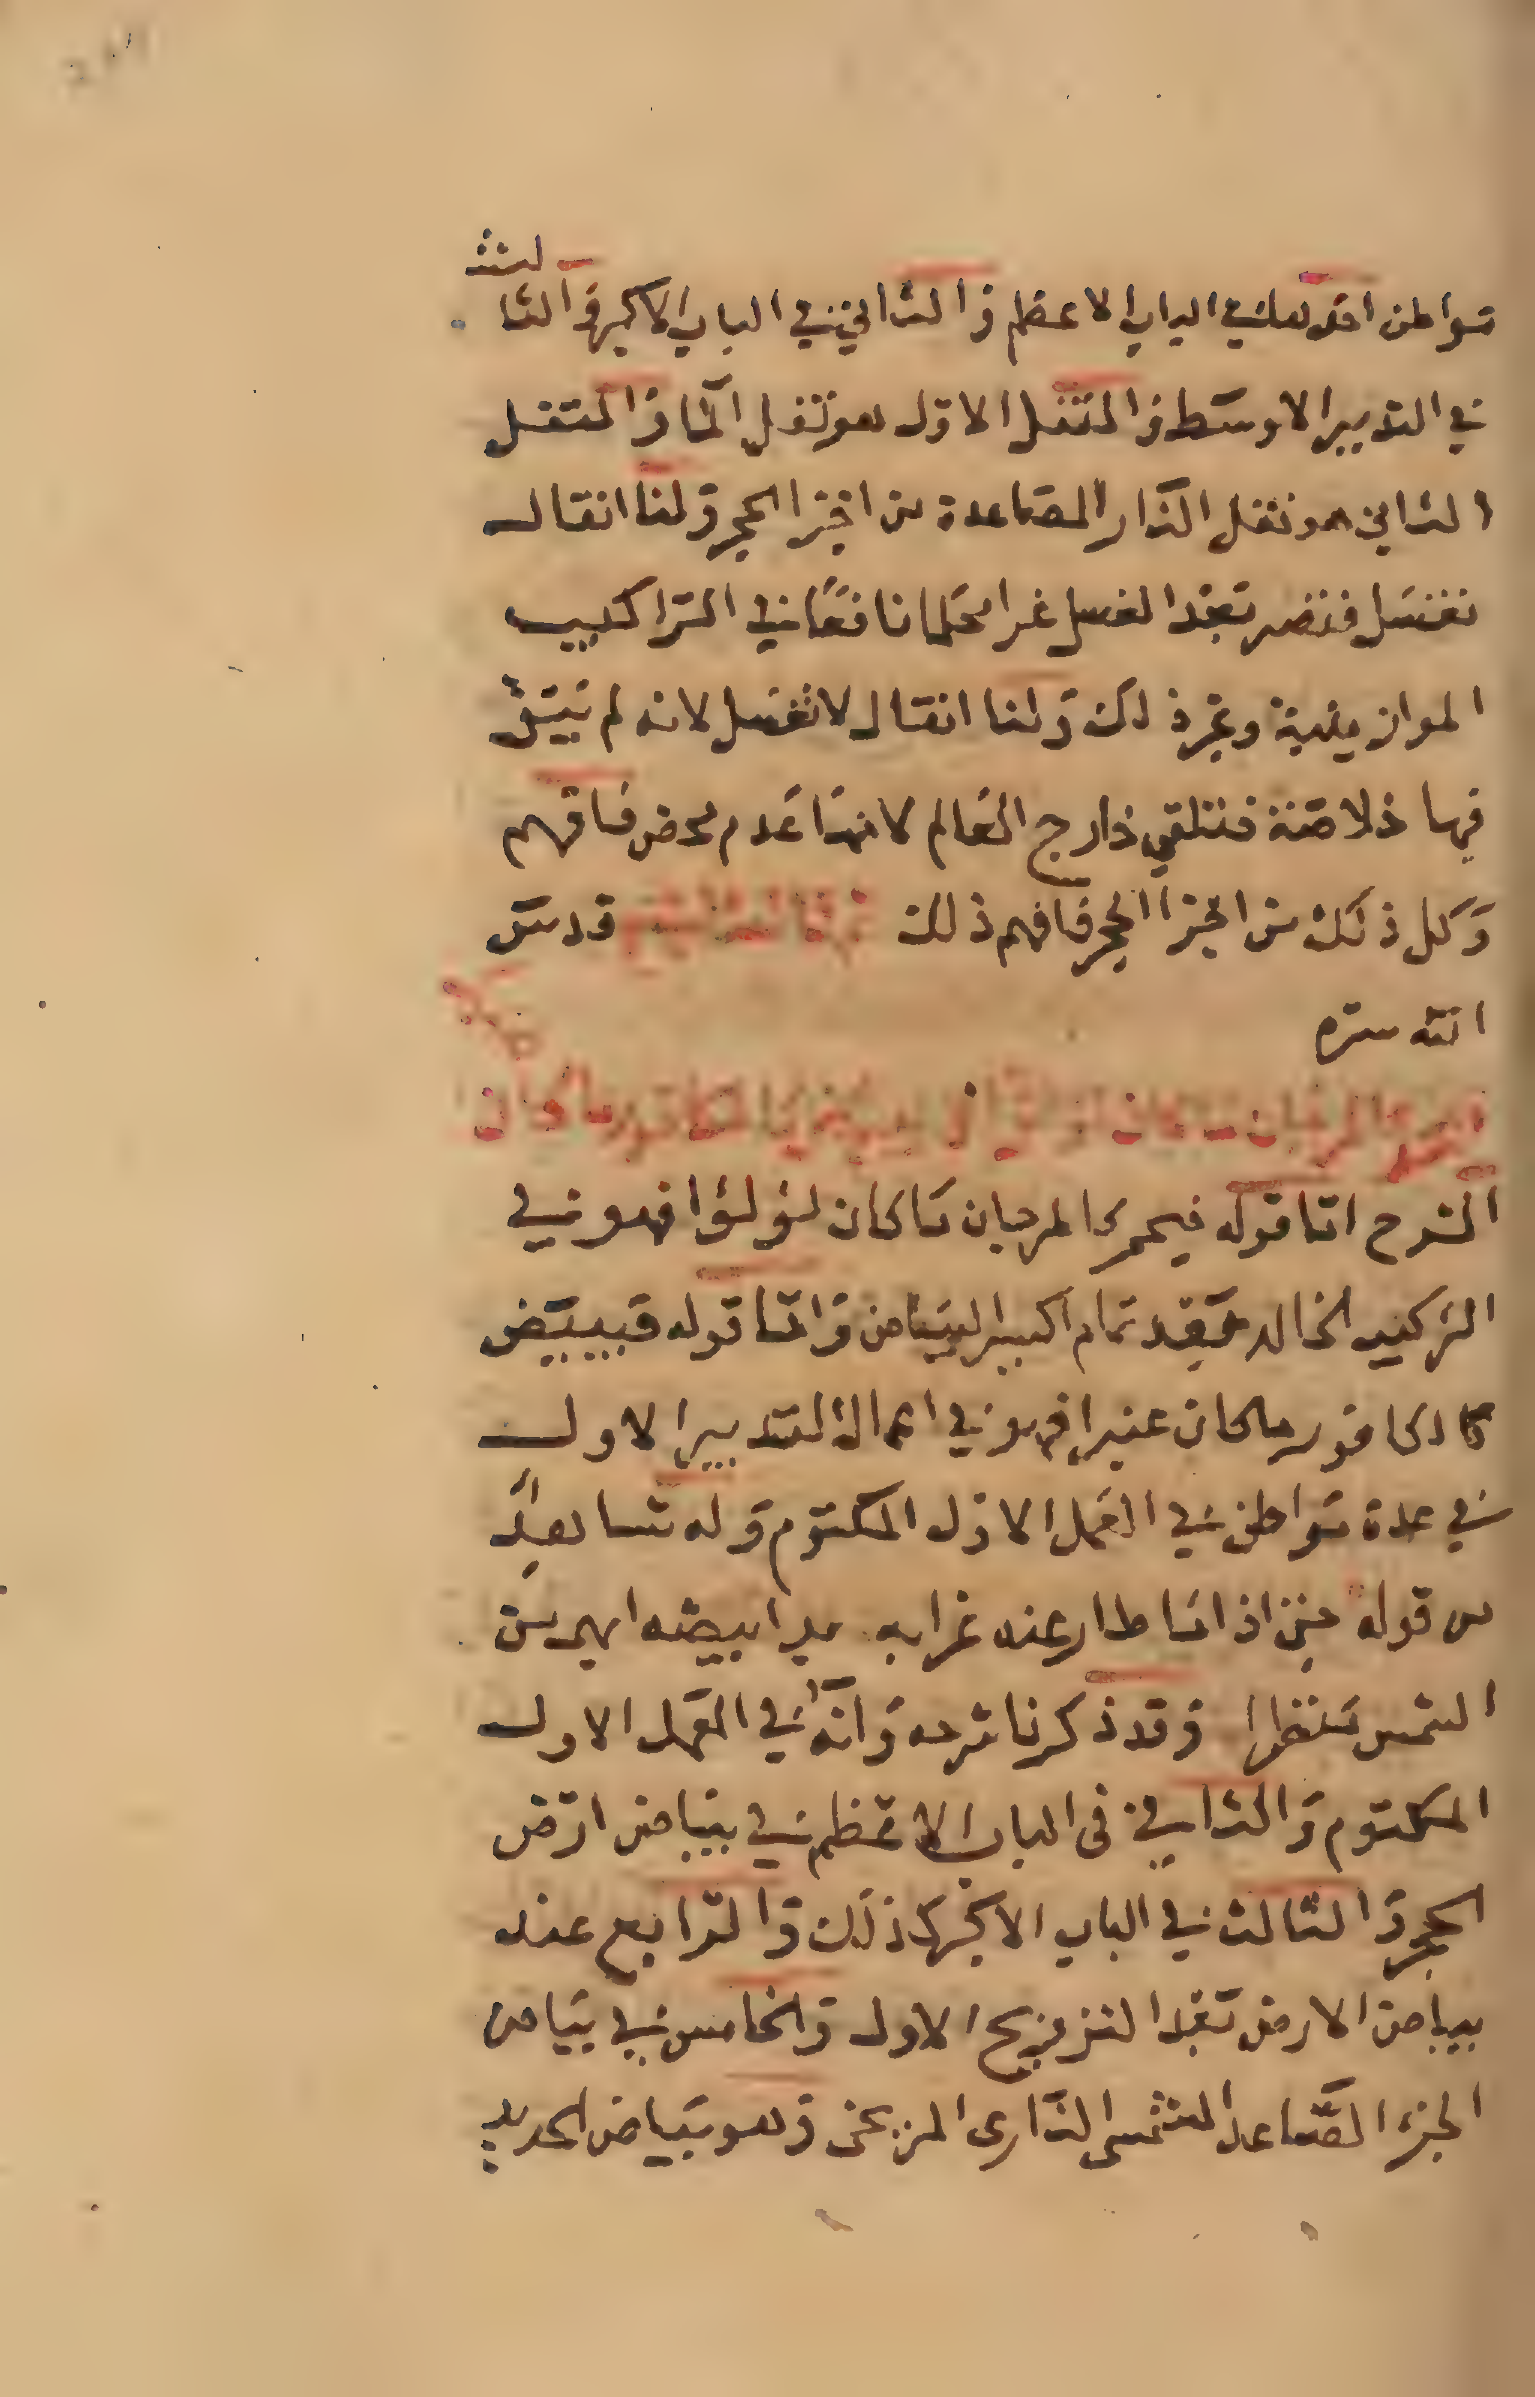 مواطن احدهما في الباب الاعظم والثاني في الباب الاكبر والثالث
في التدبير الاوسط والثفل الاول هو ثفل الما والثفل
الثاني هو ثفل النار الصاعدة من اجزا الحجر ولنا اثفال
تغسل فتصير بعد الغسل غرا محلها نافعا في التراكيب
الموازينية وغير ذلك ولنا اثفال لا تغسل لانه لم يبق
فيها خلاصة فتلقى خارج العالم لانها عدم محض فافهم
وكل ذلك من اجزا الحجر فافهم ذلك ثم قال الشيخ قدس
الله سره
فيحمر كالمرجان ما كان لؤلؤا ويبيض كالكافور ما كان
الشرح اما قوله فيحمر كالمرجان ما كان لؤلؤا فهو في
التركيب الخالد بعد تمام اكسير البياض واما قوله فيبيض
كالكافور ما كان عنبرا فهو في اعمال التدبير الاول
في عدة مواطن في العمل الاول المكتوم وله شاهد
من قوله حين اذا ما طار عنه غرابه بدا بيضه ابهى من
الشمس منظرا وقد ذكرنا شرحه وانه في العمل الاول
المكتوم والثاني في الباب الاعظم في بياض ارض
الحجر والثالث في الباب الاكبر كذلك والرابع عند
بياض الارض بعد التزويج الاول والخامس في بياض
الجزء الصاعد الشمسي الناري المريخى وهو بياض الحديد